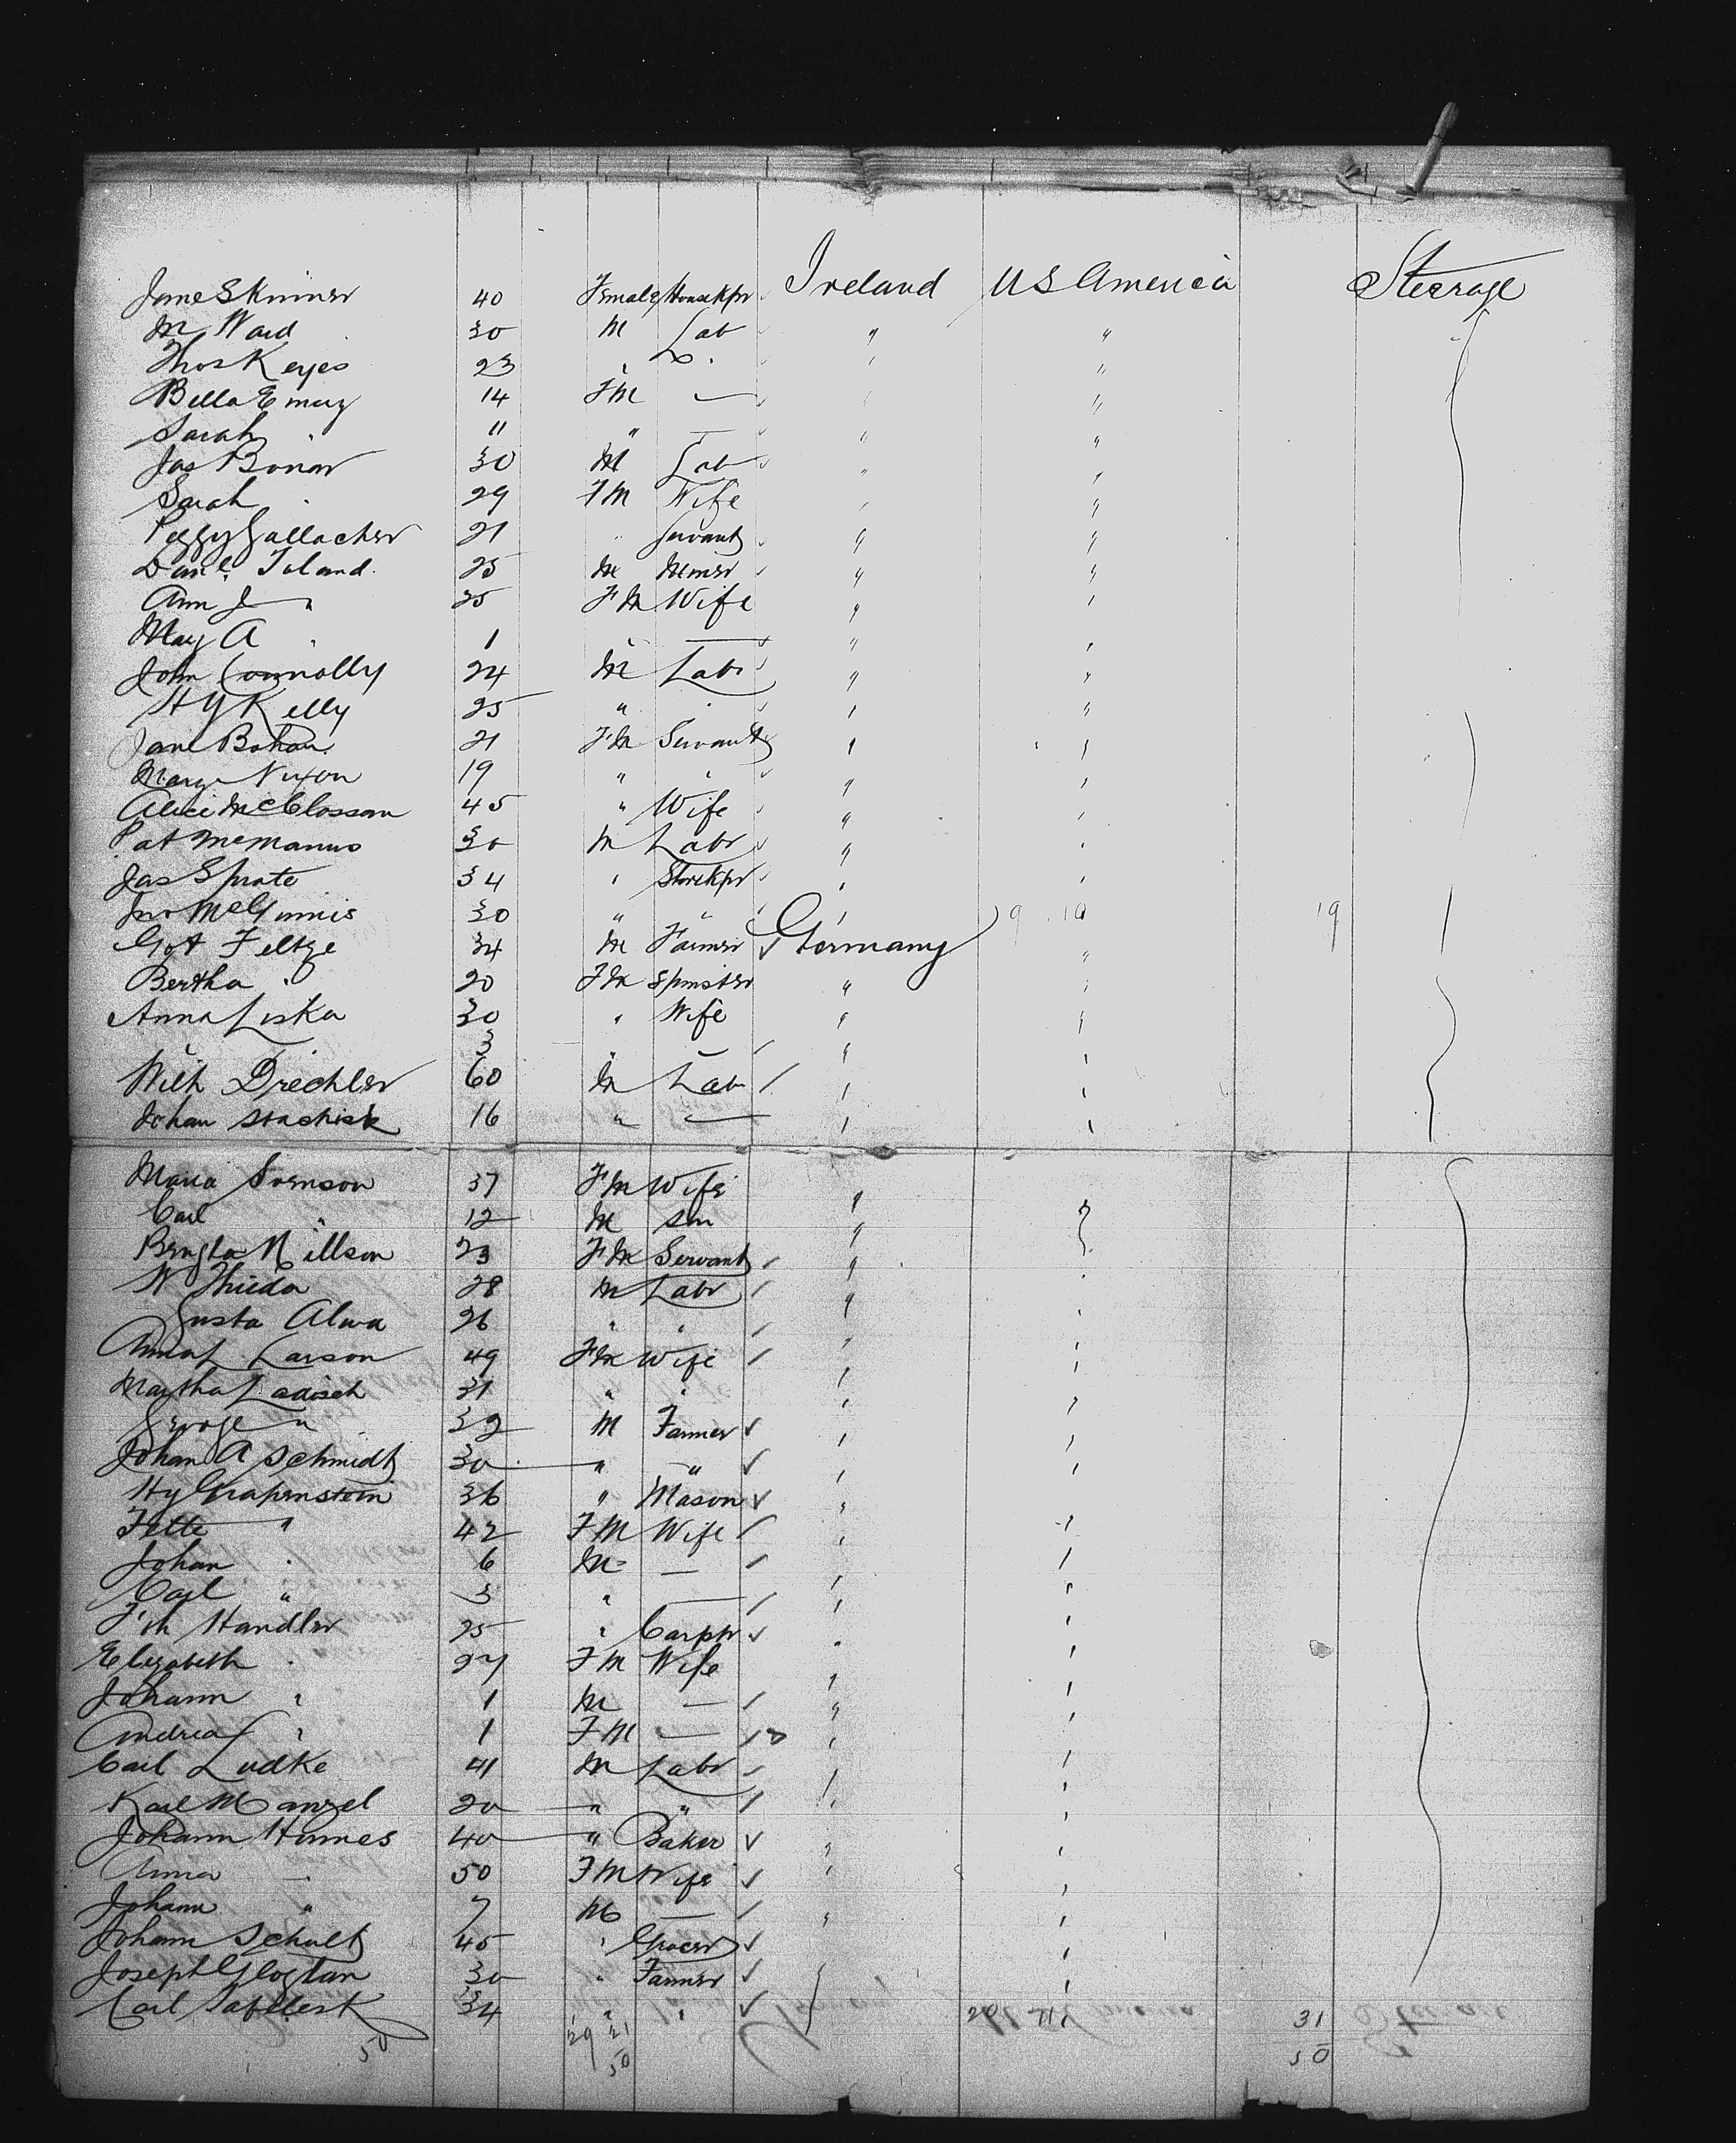 Jane Skinner 40 Female Housekpr Ireland US America Steerage
M Ward 30 M Lab " "
Thos Keyes 23 " Do " "
Bella Emery 14 FM — " "
Sarah " 11 " — " "
Jas Bonar 30 M Lab " "
Sarah " 29 FM Wife " "
Peggy Gallacher 21 " Servant " "
Danl Toland 25 M Miner " "
Ann J " 25 FM Wife " "
May A " 1 " — " "
John Connolly 24 M Labr " "
Hy Kelly 25 " " " "
Jane Bohan 21 FM Servant " "
Mary Nixon 19 " " " "
Alice McClossan 45 " Wife " "
Pat McManus 30 M Labr " "
Jas Sprote 34 " Storekpr " "
Jno McGinnis 30 " " " 19
Got Feltze 34 M Farmer Germany "
Bertha " 20 FM Spinster " "
Anna Liska 30 " Wife " "
" " 3 " — " "
Wilh Drechler 60 M Lab " "
Johan Stachisk 16 " — " "
Maria Svenson 37 FM Wife " "
Carl " 12 M Son " "
Bengta Nillson 23 FM Servant " "
W Thieda 28 M Labr " "
Gusta Alwa 26 " " " "
Anna L Larson 49 FM Wife " "
Martha Ladisch 31 " " " "
George " 32 M Farmer " "
Johan A Schmidt 30 " " " "
Hy Grapenstein 36 " Mason " "
Fette " 42 FM Wife " "
Johan " 6 M — " "
Carl " 3 " — " "
Frh Handler 25 " Carptr " "
Elizabeth " 27 FM Wife " "
Johann " 1 M — " "
Andrea " 1 FM — " "
Carl Ludke 41 M Labr " "
Karl Manzel 20 " " " "
Johann Hunes 40 " Baker " "
Anna " 50 FM Wife " "
Johann " 7 M — " "
Johann Schult 45 " Grocer " "
Joseph Glogtan 30 " Farmer " "
Carl 34 " " " 31
50 29 21 50
50